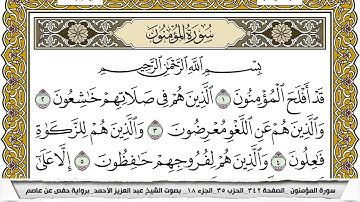 سُورَةُ المُؤْمِنُونَ
بِسْمِ اللَّهِ الرَّحْمَٰنِ الرَّحِيمِ
قَدْ أَفْلَحَ الْمُؤْمِنُونَ ١ الَّذِينَ هُمْ فِي صَلَاتِهِمْ خَاشِعُونَ ٢
وَالَّذِينَ هُمْ عَنِ اللَّغْوِ مُعْرِضُونَ ٣ وَالَّذِينَ هُمْ لِلزَّكَوٰةِ
فَاعِلُونَ ٤ وَالَّذِينَ هُمْ لِفُرُوجِهِمْ حَافِظُونَ ٥ إِلَّا عَلَىٰ
سورة المؤمنون _ الصفحة ٣٤٢ _ الحزب ٣٥ _ الجزء ١٨ _ بصوت الشيخ عبد العزيز الأحمد _ برواية حفص عن عاصم